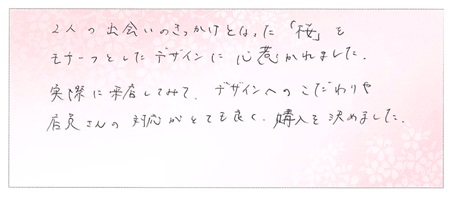 2人の出会いのきっかけとなった「桜」を
モチーフとしたデザインに心惹かれました。
実際に来店してみて、デザインへのこだわりや
店員さんの対応がとても良く、購入を決めました。